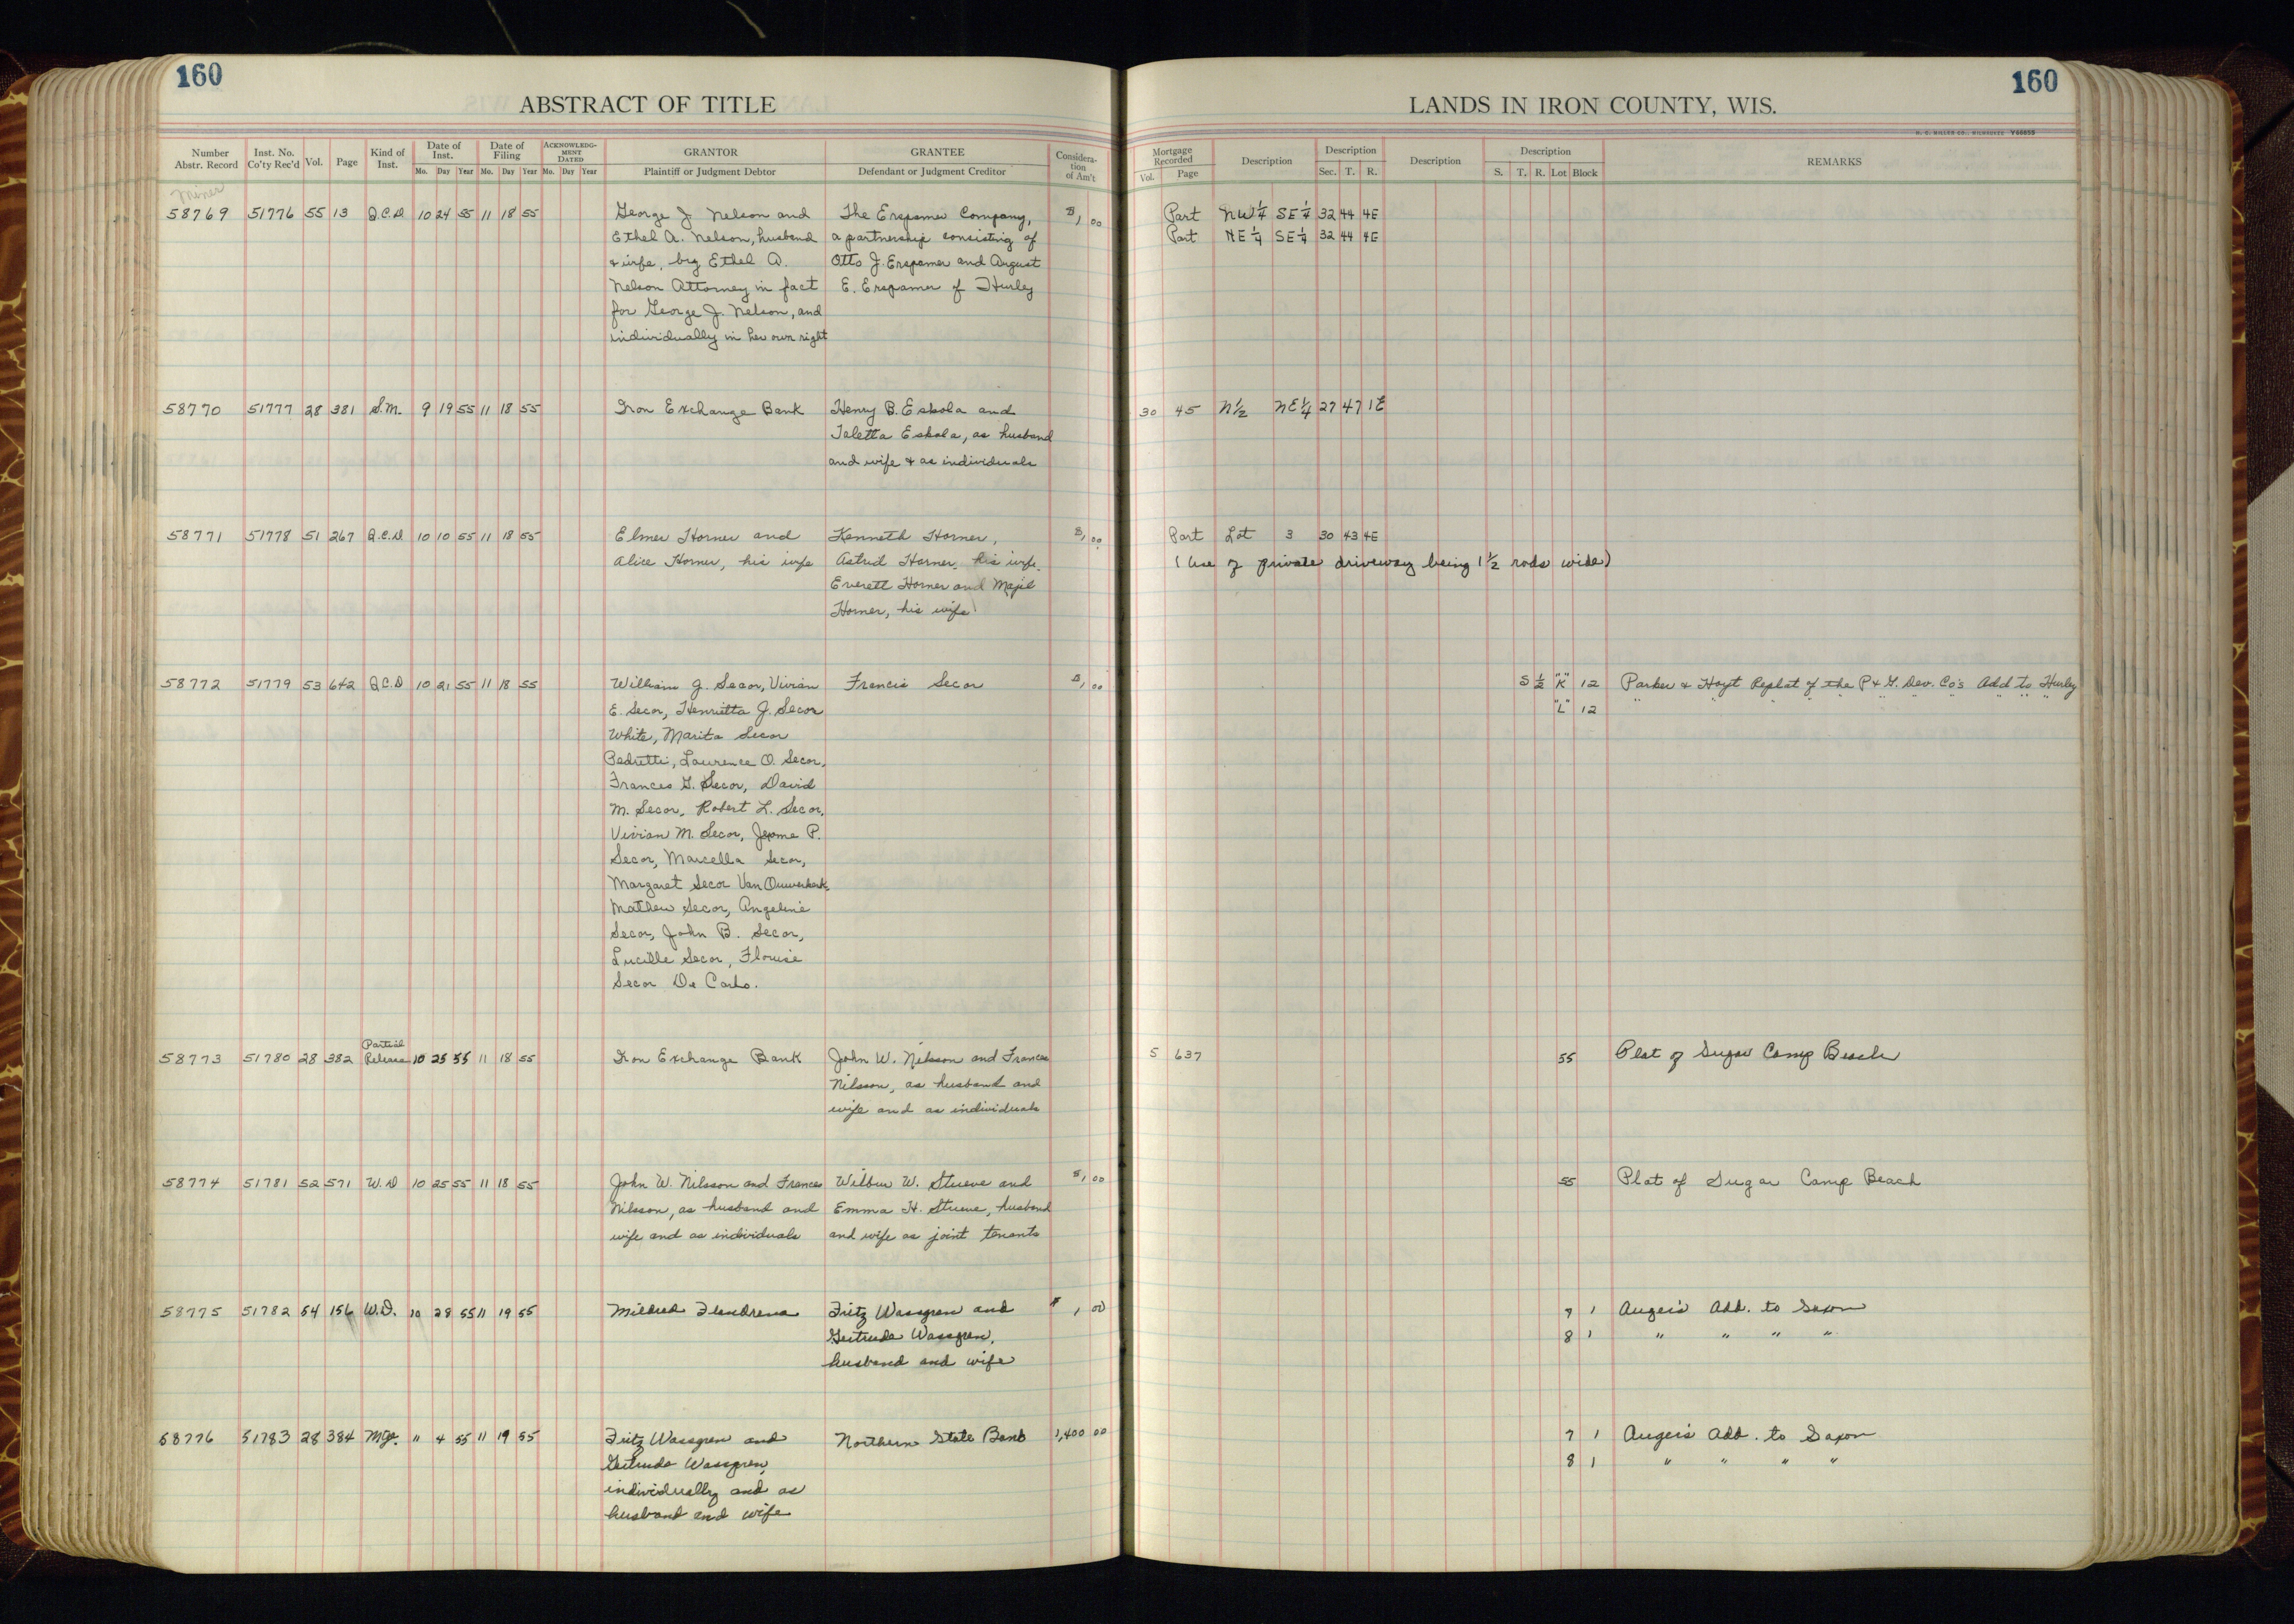 160
ABSTRACT OF TITLE
Number Abstr. Record | Inst. No. Co'ty Rec'd | Vol. | Page | Kind of Inst. | Date of Inst. Mo. Day Year | Date of Filing Mo. Day Year | ACKNOWLEDGMENT DATED Mo. Day Year | GRANTOR Plaintiff or Judgment Debtor | GRANTEE Defendant or Judgment Creditor | Consideration of Am't
Miner
58769 51776 55 13 Q.C.D. 10 24 55 11 18 55 George J. Nelson and | The Erspamer Company, | $1,00
Ethel A. Nelson, husband | a partnership consisting of
& wife, by Ethel A. | Otto J. Erspamer and August
Nelson Attorney in fact | E. Erspamer of Hurley
for George J. Nelson, and
individually in her own right
58770 51777 28 381 S.M. 9 19 55 11 18 55 Iron Exchange Bank | Henry B. Eskola and
Taletta Eskola, as husband
and wife & as individuals
58771 51778 51 267 Q.C.D 10 10 55 11 18 55 Elmer Horner and | Kenneth Horner, | $1,00
Alice Horner, his wife | Astrid Horner, his wife,
Everett Horner and Majel
Horner, his wife
58772 51779 53 642 Q.C.D 10 21 55 11 18 55 William J. Secor, Vivian | Francis Secor | $1,00
E. Secor, Henrietta J. Secor
White, Marita Secor
Pedretti, Laurence O. Secor,
Frances G. Secor, David
M. Secor, Robert L. Secor,
Vivian M. Secor, Jerome P.
Secor, Marcella Secor,
Margaret Secor Van Ouwerkerk,
Mathew Secor, Angeline
Secor, John B. Secor,
Lucille Secor, Flourise
Secor De Carlo.
58773 51780 28 382 Partial Release 10 25 55 11 18 55 Iron Exchange Bank | John W. Nilsson and Frances
Nilsson, as husband and
wife and as individuals
58774 51781 52 571 W.D 10 25 55 11 18 55 John W. Nilsson and Frances | Wilbur W. Stueve and | $1,00
Nilsson, as husband and | Emma H. Stueve, husband
wife and as individuals | and wife as joint tenants
58775 51782 54 156 W.D. 10 28 55 11 19 55 Mildred | Fritz Wassgren and | $1,00
Gertrude Wassgren,
husband and wife
58776 51783 28 384 Mtge. " 4 55 11 19 55 Fritz Wassgren and | Northern State Bank | 1,400 00
Gertrude Wassgren,
individually and as
husband and wife
160
LANDS IN IRON COUNTY, WIS.
H. C. MILLER CO., MILWAUKEE Y66855
Mortgage Recorded Vol. Page | Description | Description Sec. T. R. | Description | Description S. T. R. Lot Block | REMARKS
Part NW¼ SE¼ 32 44 4E
Part NE¼ SE¼ 32 44 4E
30 45 N½ NE¼ 27 47 1E
Part Lot 3 30 43 4E
(Use of private driveway being 1½ rods wide)
S½ "K" 12 Parker & Hoyt Replat of the P & G. Dev. Co's Add to Hurley
"L" 12 " " " " " " " " " "
5 637 55 Plat of Sugar Camp Beach
55 Plat of Sugar Camp Beach
7 1 Auger's Add. to Saxon
8 1 " " " "
7 1 Auger's Add. to Saxon
8 1 " " " "